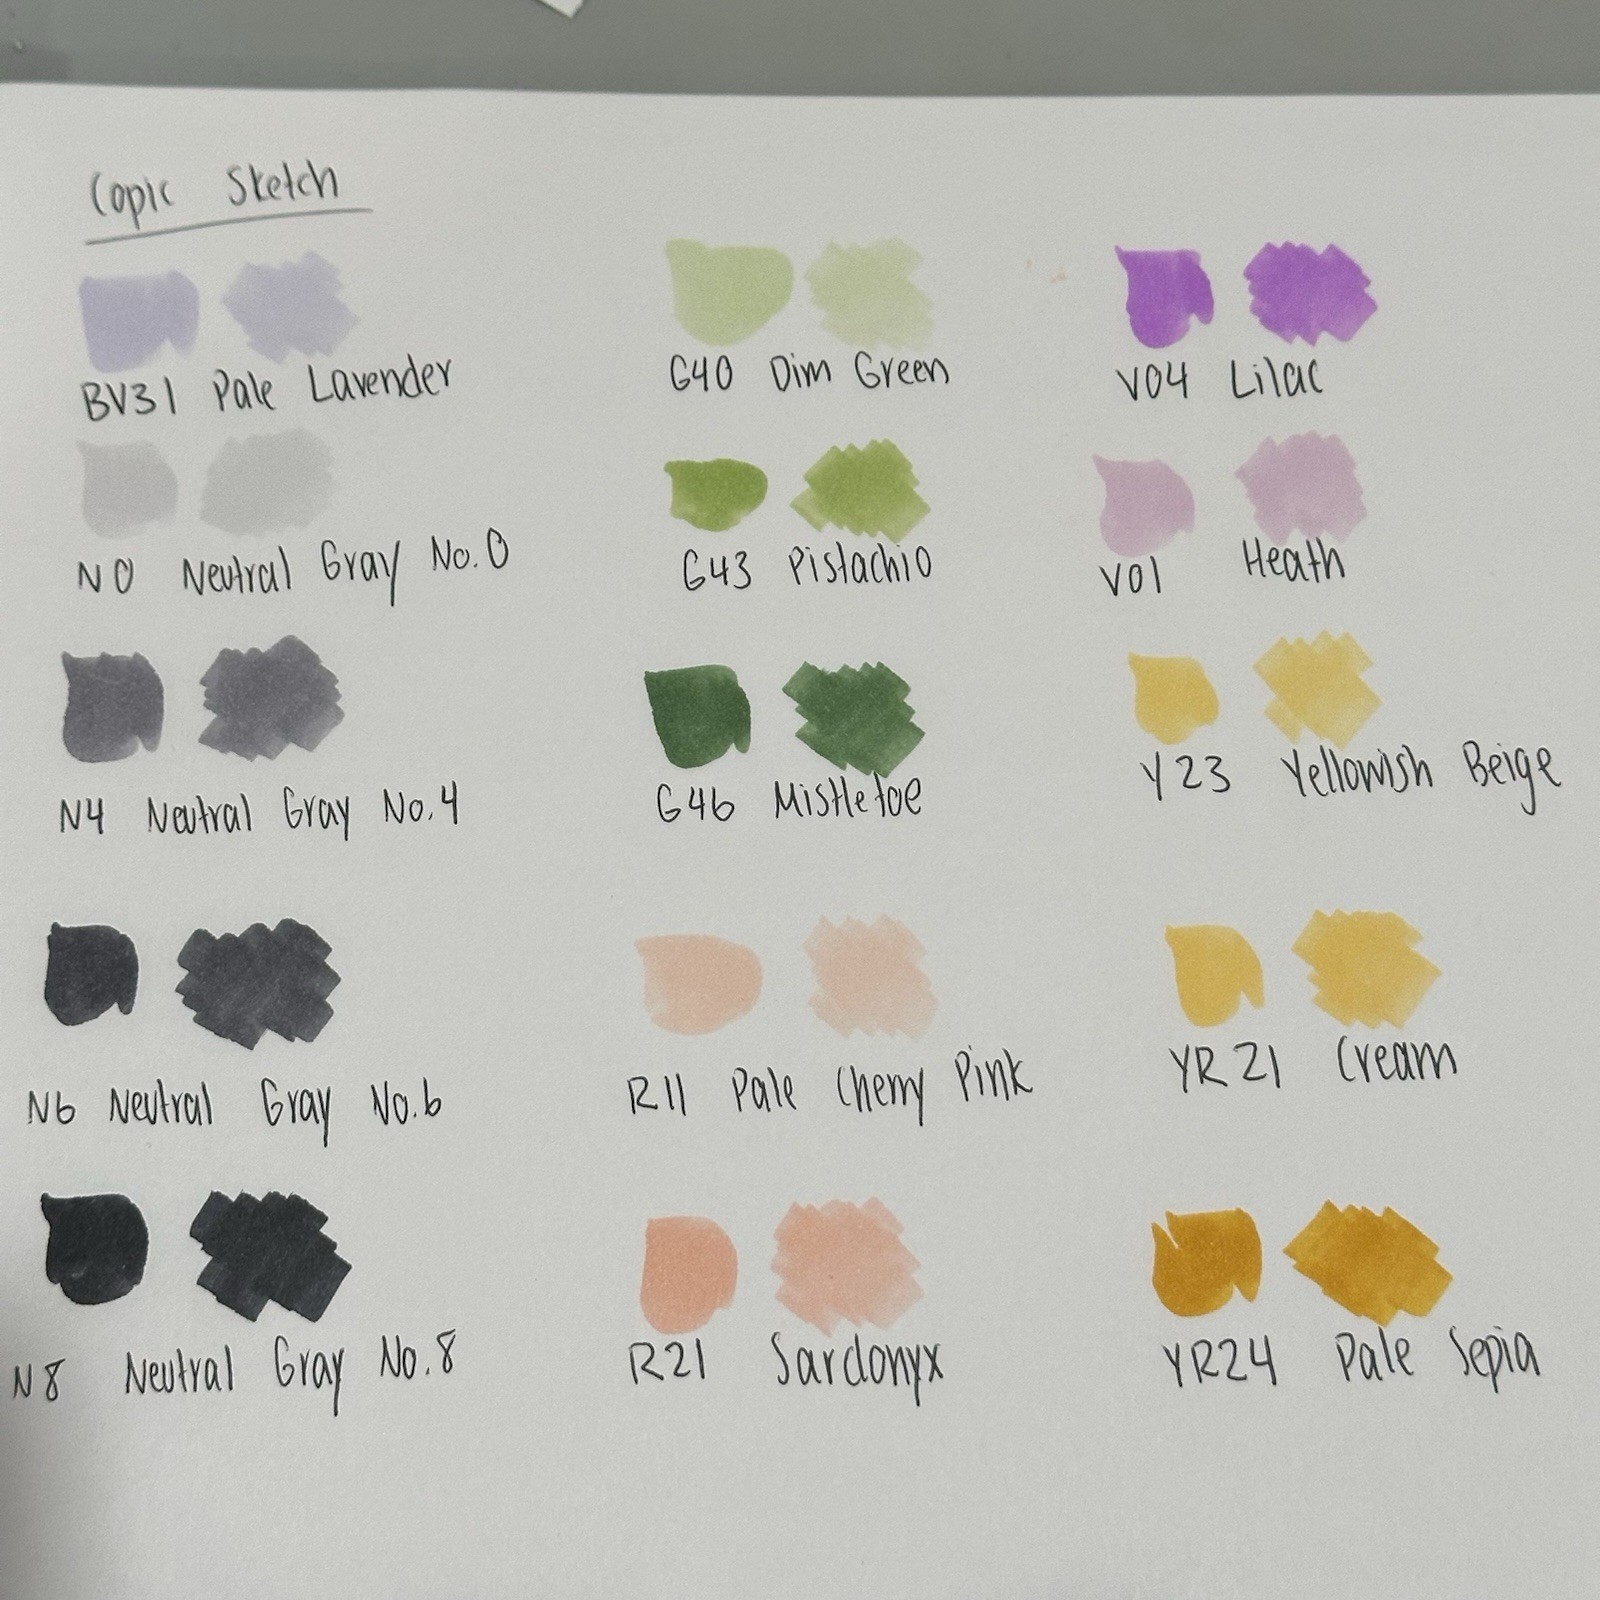 Copic Sketch
BV31 Pale Lavender
N0 Neutral Gray No.0
N4 Neutral Gray No.4
N6 Neutral Gray No.6
N8 Neutral Gray No.8
G40 Dim Green
G43 Pistachio
G46 Mistletoe
R11 Pale Cherry Pink
R21 Sardonyx
V04 Lilac
V01 Heath
Y23 Yellowish Beige
YR21 Cream
YR24 Pale Sepia